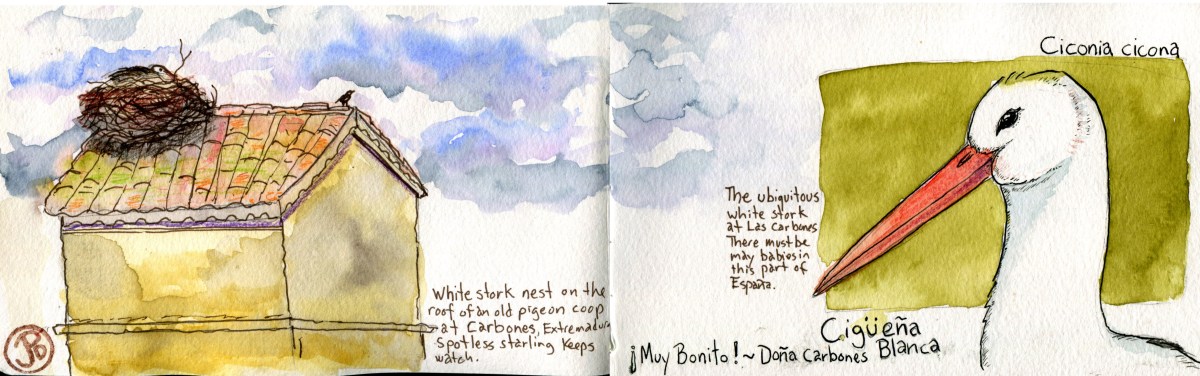 White stork nest on the
roof of an old pigeon coop
at Carbones, Extremadura
Spotless starling keeps
watch.
JPD
Ciconia cicona
The ubiquitous
white stork
at Las Carbones
There must be
may babies in
this part of
España.
Cigüeña
Blanca
¡Muy Bonito! ~ Doña Carbones